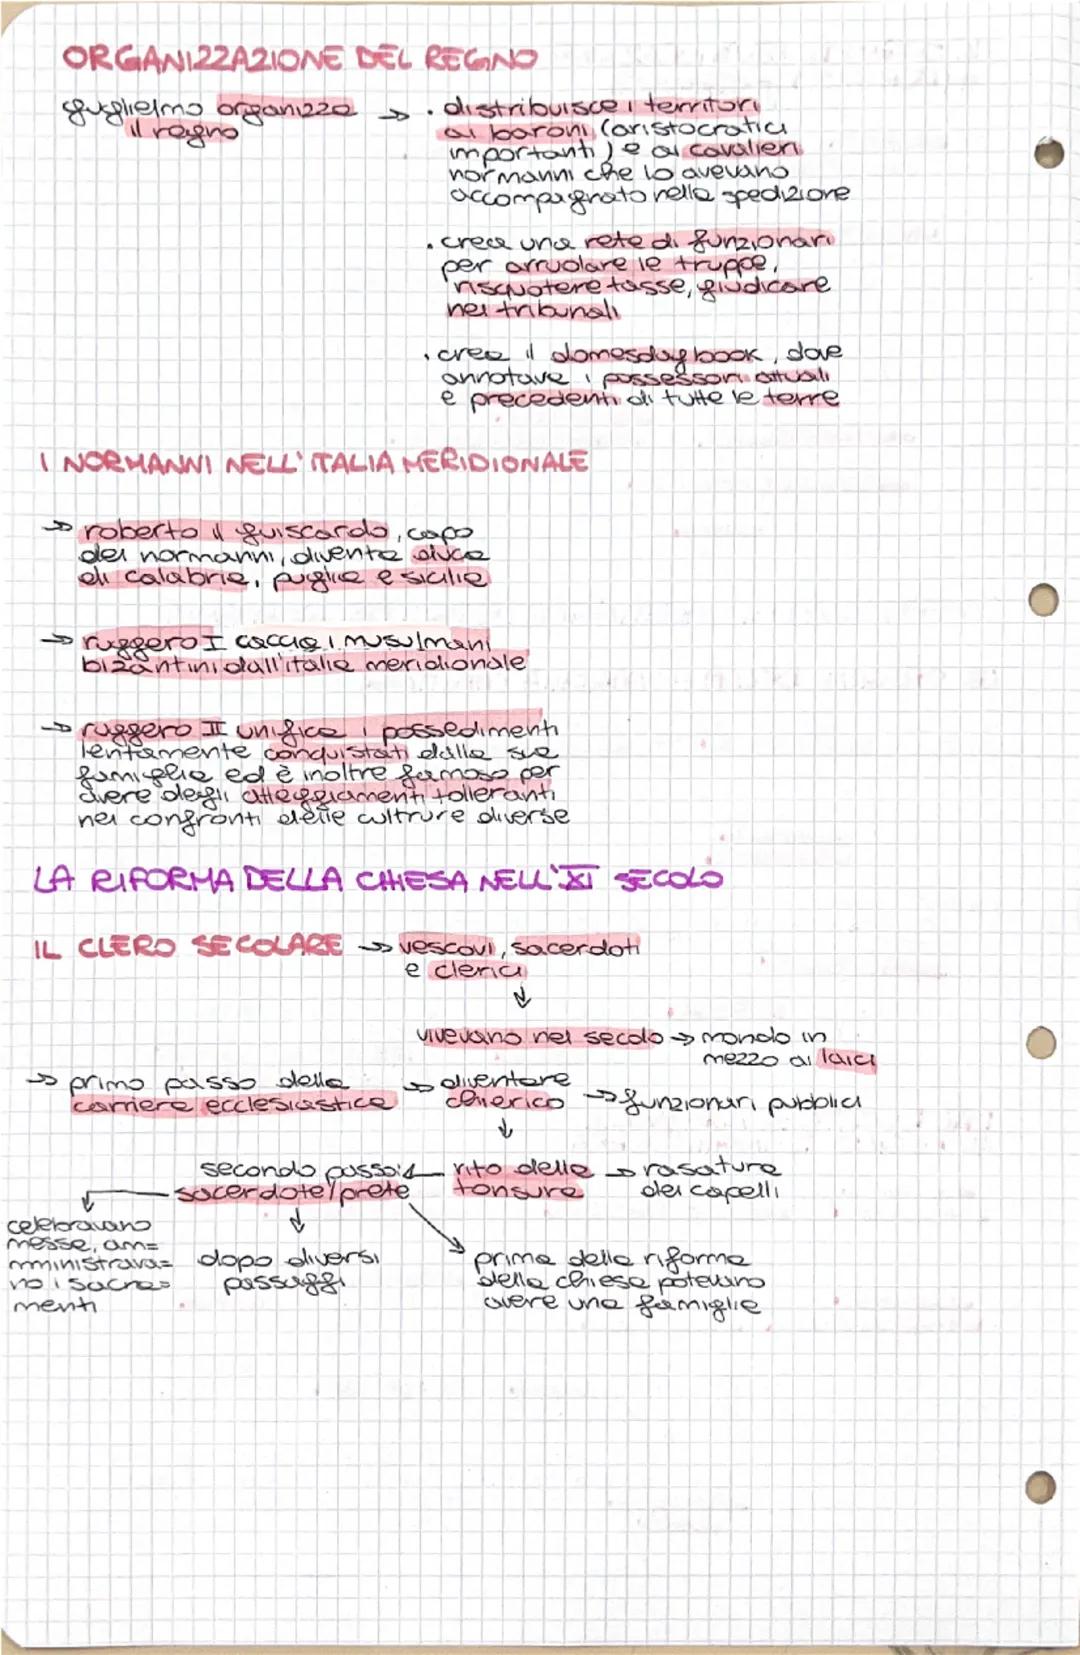 ORGANIZZAZIONE DEL REGNO
guglielmo organizza →
il regno
. distribuisce i territori
ai baroni (aristocratici
importanti) e ai cavalieri
normanni che lo avevano
accompagnato nella spedizione
. crea una rete di funzionari
per arruolare le truppe,
risquotere tasse, giudicare
nei tribunali
. crea il domesday book, dove
annotava i possessori attuali
e precedenti di tutte le terre
I NORMANNI NELL'ITALIA MERIDIONALE
→ roberto il guiscardo, capo
dei normanni, diventa duca
di calabria, puglia e sicilia
→ ruggero I caccia i musulmani
bizantini dall'italia meridionale
→ ruggero II unifica i possedimenti
lentamente conquistati dalla sua
famiglia ed è inoltre famoso per
avere degli atteggiamenti tolleranti
nei confronti delle cultrure diverse
LA RIFORMA DELLA CHIESA NELL'XI SECOLO
IL CLERO SECOLARE → vescovi, sacerdoti
e clerici
↓
vivevano nel secolo → mondo in
mezzo ai laici
→ primo passo della → diventare
carriera ecclesiastica chierico → funzionari pubblici
↓
secondo passo: ← rito della → rasatura
sacerdote/prete tonsura dei capelli
celebravano
messe, am=
mministrava=
no i sacra=
menti
dopo diversi
passaggi
prima della riforma
della chiesa potevano
avere una famiglia